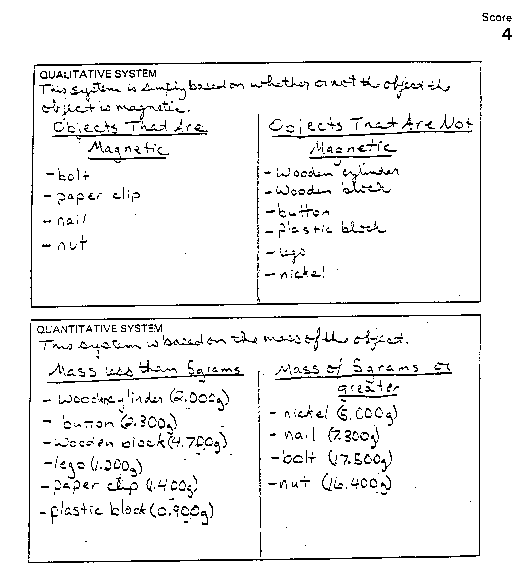 Score
4
QUALITATIVE SYSTEM
This system is simply based on whether or not the object the
object is magnetic.
Objects That Are
Magnetic
- bolt
- paper clip
- nail
- nut
Objects That Are Not
Magnetic
- Wooden cylinder
- Wooden block
- button
- Plastic block
- lego
- nickel
QUANTITATIVE SYSTEM
This system is based on the mass of the object.
Mass less than 5 grams
- Wooden cylinder (2.000g)
- button (2.300g)
- wooden block (4.700g)
- lego (1.200g)
- paper clip (1.400g)
- plastic block (0.900g)
Mass of 5 grams or
greater
- nickel (5.000g)
- nail (7.300g)
- bolt (17.500g)
- nut (16.400g)